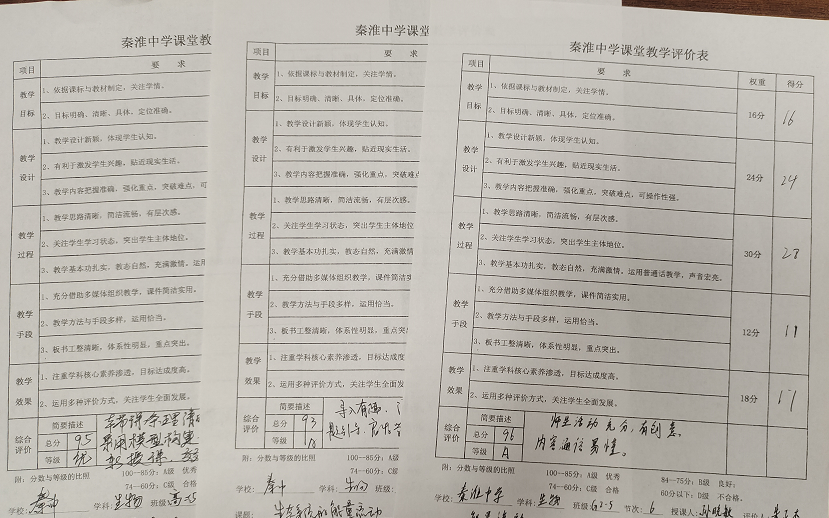 秦淮中学课堂教
项目
要 求
教学目标
1、依据课标与教材制定，关注学情。
2、目标明确、清晰、具体，定位准确。
教学设计
1、教学设计新颖，体现学生认知。
2、有利于激发学生兴趣，贴近现实生活。
3、教学内容把握准确，强化重点，突破难点，可
教学过程
1、教学思路清晰，简洁流畅，有层次感。
2、关注学生学习状态，突出学生主体地位。
3、教学基本功扎实，教态自然，充满激情，运用
教学手段
1、充分借助多媒体组织教学，课件简洁实用。
2、教学方法与手段多样，运用恰当。
3、板书工整清晰，体系性明显，重点突出。
教学效果
1、注重学科核心素养渗透，目标达成度高。
2、运用多种评价方式，关注学生全面发展。
综合评价
简要描述
总分 95
等级 优
采用模型构建
附：分数与等级的比照 100—85分：A级 优秀
74—60分：C级 合格
学校： 秦中 学科： 生物 班级：
秦淮中学课堂
项目
要 求
教学目标
1、依据课标与教材制定，关注学情。
2、目标明确、清晰、具体，定位准确。
教学设计
1、教学设计新颖，体现学生认知。
2、有利于激发学生兴趣，贴近现实生活。
3、教学内容把握准确，强化重点，突破难点
教学过程
1、教学思路清晰，简洁流畅，有层次感。
2、关注学生学习状态，突出学生主体地位。
3、教学基本功扎实，教态自然，充满激情
教学手段
1、充分借助多媒体组织教学，课件简洁实
2、教学方法与手段多样，运用恰当。
3、板书工整清晰，体系性明显，重点突
教学效果
1、注重学科核心素养渗透，目标达成度
2、运用多种评价方式，关注学生全面发
综合评价
简要描述
总分 93
等级 A
导入有趣
附：分数与等级的比照 100—85分：A级
74—60分：C级
学校： 秦中 学科： 生物 班级：
课题： 生态系统的能量流动
秦淮中学课堂教学评价表
项目
要 求
权重
得分
教学目标
1、依据课标与教材制定，关注学情。
2、目标明确、清晰、具体，定位准确。
16分 16
教学设计
1、教学设计新颖，体现学生认知。
2、有利于激发学生兴趣，贴近现实生活。
3、教学内容把握准确，强化重点，突破难点，可操作性强。
24分 24
教学过程
1、教学思路清晰，简洁流畅，有层次感。
2、关注学生学习状态，突出学生主体地位。
3、教学基本功扎实，教态自然，充满激情，运用普通话教学，声音宏亮。
30分 28
教学手段
1、充分借助多媒体组织教学，课件简洁实用。
2、教学方法与手段多样，运用恰当。
3、板书工整清晰，体系性明显，重点突出。
12分 11
教学效果
1、注重学科核心素养渗透，目标达成度高。
2、运用多种评价方式，关注学生全面发展。
18分 17
综合评价
简要描述
总分 96
等级 A
师生活动充分，有创意。
内容通俗易懂。
附：分数与等级的比照 100—85分：A级 优秀 84—75分：B级 良好：
74—60分：C级 合格 60分以下：D级 不合格.
学校： 秦淮中学 学科： 生物 班级 节次： 6 授课人： 孙晓敏 评价人：